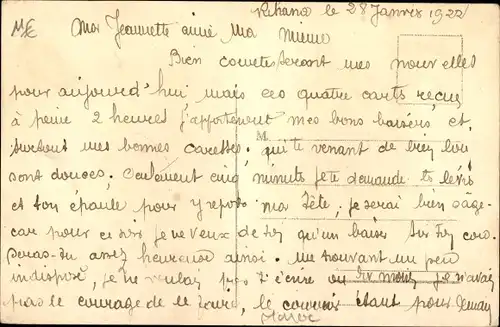 Rihana le 28 Janvier 1922
ME Ma Jeannette aimé Ma Mienne
Bien courtes seront mes nouvelles
pour aujourd'hui, mais ces quatre carts reçus
à peine 2 heures j'apportent mes bons baisers et
surtout mes bonnes caresses, qui te venant de bien loin
M.
sont douces, Seulement cinq minuts je te demande ts lévrs
et ton épaule pour y repos ma Tête, je serai bien sage
car pour ce soir je ne veux de toi qu'un baiser sur Toy
Seras-tu assez heureuse ainsi. me trouvant un peu
indisposé, je ne voulais pas t'écrire ou dix moins je n'avais
pas le courage de le faire, le courrier étant pour demain
Maroc